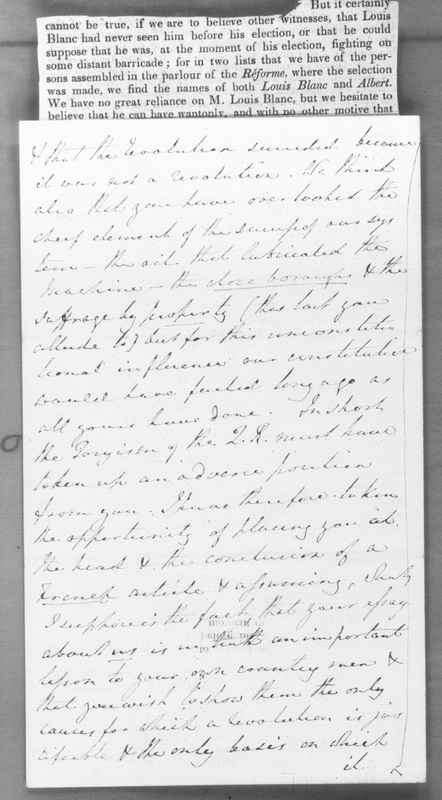 But it certainly
cannot be true, if we are to believe other witnesses, that Louis
Blanc had never seen him before his election, or that he could
suppose that he was, at the moment of his election, fighting on
some distant barricade; for in two lists that we have of the per-
sons assembled in the parlour of the Réforme, where the selection
was made, we find the names of both Louis Blanc and Albert.
We have no great reliance on M. Louis Blanc, but we hesitate to
believe that he can have wantonly, and with no other motive that
& that the Revolution succeeded because
it was not a revolution. We think
also that you have overlooked the
chief element of the success of our sys
tem – the oil that lubricated the
Machine – the close boroughs & the
suffrage by property (this last you
allude to) but for this unconstitu
tional influence our constitution
would have failed long ago as
all yours have done. In short
the Toryism of the Q.R. must have
taken up an adverse position
from you. I have therefore taken
the opportunity of placing you at
the head & the conclusion of a
French article & assuming, what
I suppose is the fact, that your essay
about us is in truth an important
lesson to your own country men &
that you wish to show them the only
causes for which a revolution is jus
tifiable & the only basis on which
it